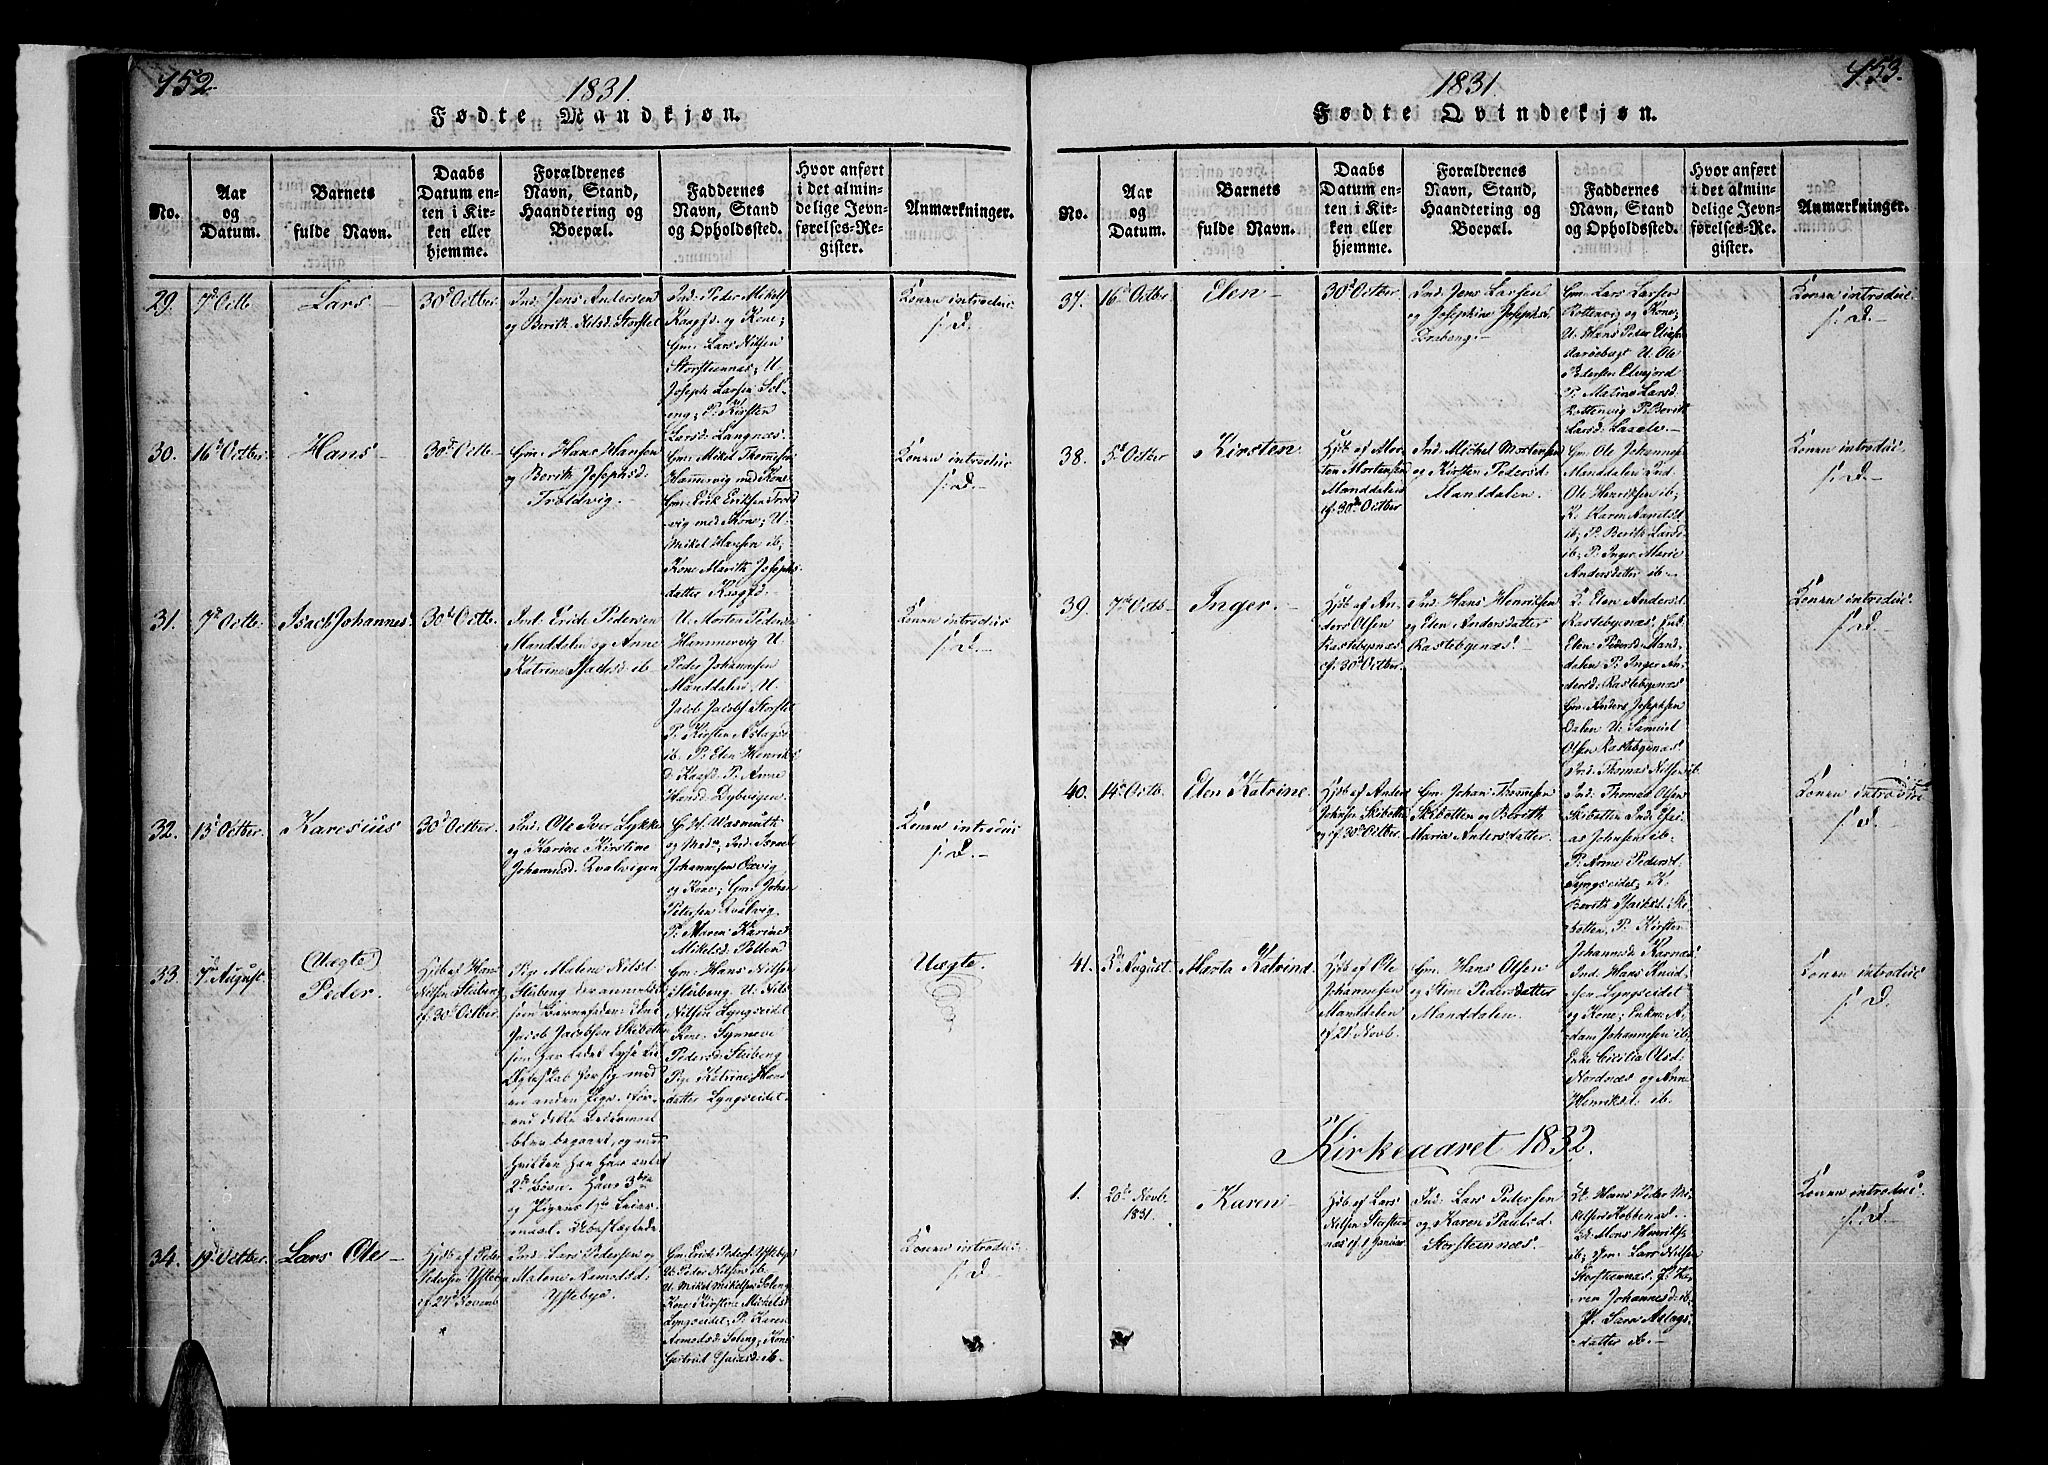 152.
1831.
Fødte Mandkjøn.
No.
Aar
og
Datum.
Barnets
fulde Navn.
Daabs
Datum en-
ten i Kir-
ken eller
hjemme.
Forældrenes
Navn, Stand,
Haandtering og
Boepæl.
Faddernes
Navn, Stand
og Opholdssted.
Hvor anført
i det almin-
delige Jevn-
førelses-Re-
gister.
Anmærkninger.
29. 7d Octb
Lars
30d Octber
Ind. Jens Andersen
og Berith Nilsd. Storstet
Ind. Peder Mikels
Kaagsd. og Kone;
Gm. Lars Nilsen
Storsteennæs; U.
Joseph Larsen Sol-
eng; P. Kirsten
Larsd. Langnæs.
Konen introduc.
f. D.
30. 16d Octber
Hans
30d Octb
Gm. Hans Hansen
og Berith Josephsd.
Troldvig.
Gm. Mikel Thomesen
Hammervig med Kone
Gm. Erik Eriksen Trold
vig med Kone; U.
Mikel Hansen ib;
Kone Marith Josephs-
datter Kaagsd.
Konen introduc
f. D.
31. 7d Octb.
Isach Johannes.
30d Octb.
Ind. Erich Pedersen
Manddalen og Anne
Katrine Isachsd. ib
U. Morten Pedersen
Hammervig U.
Peder Johannesen
Manddalen; U.
Jacob Jacobs. Storstet
P. Kirsten Aslags
ib. P. Elen Henriks
d. Kaagsd. P. Anne
Hansd. Dybvigen.
Konen introduc
f. D.
32. 13d Octber.
Karesius
30d Octber.
Ind. Ole Iver Lykke
og Karine Kirstine
Johannesd. Kvalvigen
H. Wasmuth
og Mad; Ind. Israel
Johannesen Oxvig
og Kone; Gm. Johan
Petersen Kvalvig.
P. Maren Karine
Mikelsd. Pollen
Konen introduc
f. D.
33. 7d August.
(Uægte)
Peder.
Hjdb af Hans
Nilsen Stuberg
cf. 30d Octber.
Pige Malene Nilsd.
Stuberg der anmeldt
som Barnefader: Enk.
Jacob Jacobsen Skibotten
som har ladet lyse til
Ægteskab for sig med
en anden Pige, før-
end dette Leiermaal
blev begaaet, og med
hvilken han har avlet
2de Børn. Hans 3die
og Pigens 1ste Leier-
maal.
Gm. Hans Nilsen
Stuberg. U. Nils
Nilsen Lyngseidet
Kone Synneve
Pedersd. Stuberg
Pige Katrine Hans
datter Lyngseidet.
Uægte.
34. 19d Octber.
Lars Ole
Hjdb af Peder
Pedersen Ysteby
cf 27d Novemb
Ind. Lars Pedersen og
Malene Aemodsd.
Ysteby.
Gm. Erick Peders. Ysteby
U. Peder Nilsen ib
U. Mikel Mikelsen Soleng
Kone Kirstine Mikelsd.
Lyngseidet; P. Karen
Aemodsd. Soleng; Kone
Gertrud Isaksd. ib.
Konen introduc.
f. D.
153.
1831.
Fødte Qvindekjøn.
No.
Aar
og
Datum.
Barnets
fulde Navn.
Daabs
Datum en-
ten i Kir-
ken eller
hjemme.
Forældrenes
Navn, Stand,
Haandtering og
Boepæl.
Faddernes
Navn, Stand
og Opholdssted.
Hvor anført
i det almin-
delige Jevn-
førelses-Re-
gister.
Anmærkninger.
37. 16d Octber
Elen
30d Octber.
Ind. Jens Larsen
og Josephine Josephsd.
Gm. Lars Larsen
Rottenvig og Kone;
U. Hans Peder
U. Ole
Pedersen Elvejord
P. Matine Larsd.
Rottenvig P. Berith
Larsd.
Konen introduc.
f. D.
38. 5d Octber
Kirsten
Hjdb af Mor-
ten Mortensen
Manddalen
cf. 30d Octber
Ind. Michel Mortensen
og Kirsten Pedersd.
Manddalen.
Gm. Ole Johannes.
Manddalen Ind.
Ole Henriksen ib;
K. Karen
ib; P. Berith Larsd
ib; P. Inger Marie
Andersdatter ib
Konen introduc.
f. D.
39. 7d Octb
Inger.
Hjdb af An-
ders Olsen
Rastebynæs
cf. 30d Octber.
Ind. Hans Henriksen
og Elen Andersdatter
Rastebynæs.
K. Elen Andersd.
Rastebynæs. Ind.
Elen Pedersd. Mand-
dalen P. Inger An-
dersd. Rastebynæs
Gm. Anders Josephsen
Dalen U. Samuel
Olsen Rastebynæs
Ind. Thomas Nilsen ib.
Konen introduc.
f. D.
40. 14d Octb.
Elen Katrine
Hjdb af Anders
Johnsen Skibotten
cf. 30d Octber.
Gm. Johan Thomesen
Skibotten og Berith
Maria Andersdatter
Ind. Thomas Olsen
Skibotten Ind. Esai-
as Johnsen ib.
P. Anne Pedersd.
Lyngseidet; K.
Berith Isaksd. Ski-
botten, P. Kirsten
Johannesd. Karnæs
Konen introduc
f. D.
41. 5d August
Marta Katrine
Hjdb af Ole
Johannesen
Manddalen
cf 21d Novb.
Gm. Hans Olsen
og Stine Pedersdatter
Manddalen.
Ind. Hans Knud-
sen Lyngseidet
og Kone; Enkem. A-
dam Johannesen ib;
Enke Cicilia Olsd.
Nordnæs og Anne
Henriksd. ib.
Konen introduc
f. D.
Kirkeaaret 1832.
1. 20d Novb.
1831.
Karen
Hjdb af Lars
Nilsen Storsteen
næs cf 1 Januar
Ind. Lars Pedersen
og Karen Paulsd.
Storsteennæs.
U. Hans Peder Mi-
kelsen Kobbenæs.
U. Mons Henriks.
ib; Gm. Lars Nilsen
Storsteennæs. P. Ka-
ren Johannesd. ib.
P. Sara Aslags-
datter ib.
Konen introduc.
f. D.